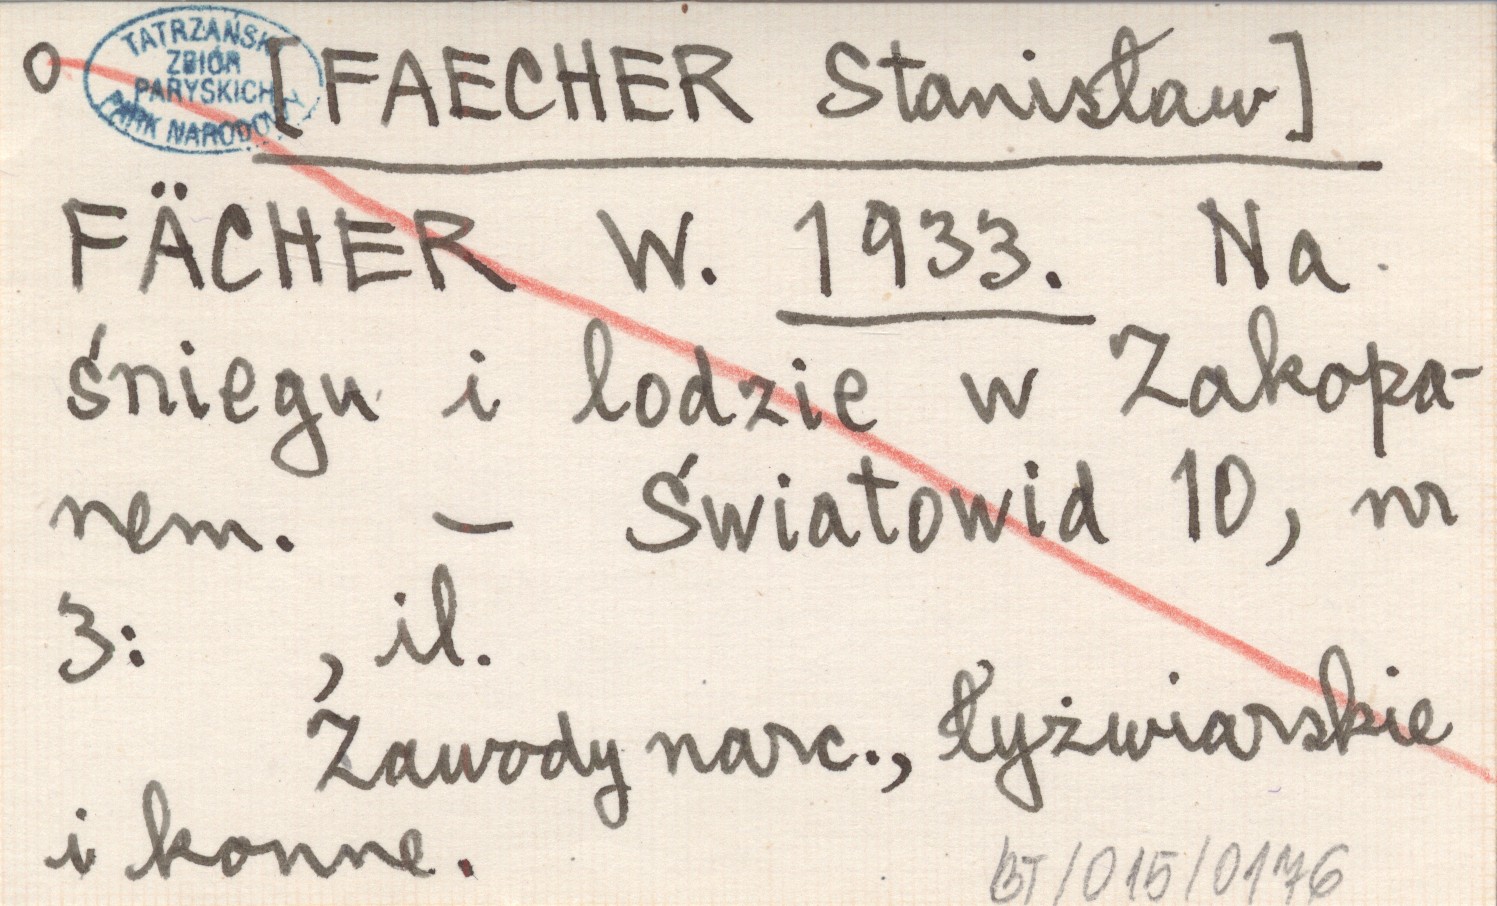 o
TATRZAŃSKI
ZBIÓR
PARYSKICH
PARK NARODOWY
[FAECHER Stanisław]
FÄCHER W. 1933. Na
śniegu i lodzie w Zakopa-
nem. – Światowid 10, nr
3:   , il.
Zawody narc., łyżwiarskie
i konne.
BT/015/0176